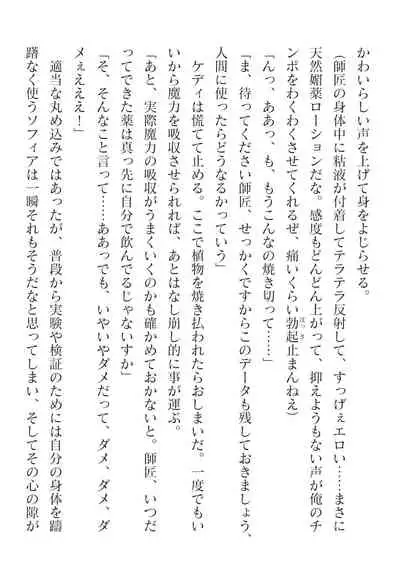 かわいらしい声を上げて身をよじらせる。
（師匠の身体中に粘液が付着してテラテラ反射して、すっげぇエロい……まさに
天然媚薬ローションだな。感度もどんどん上がって、抑えようもない声が俺のチ
ンポをわくわくさせてくれるぜ、痛いくらい勃起止まんねえ）
「んっ、ああっ、も、もうこんなの焼き切って……」
「ま、待ってください師匠、せっかくですからこのデータも残しておきましょう、
人間に使ったらどうなるかっていう」
ケディは慌てて止める。ここで植物を焼き払われたらおしまいだ。一度でもい
いから魔力を吸収させられれば、あとはなし崩し的に事が運ぶ。
「あと、実際魔力の吸収がうまくいくのかも確かめておかないと。師匠、いつだ
ってできた薬は真っ先に自分で飲んでるじゃないすか」
「そ、そんなこと言って……ああっでも、いやいやダメだって、ダメ、ダメ、ダ
メぇえええ！」
適当な丸め込みではあったが、普段から実験や検証のためには自分の身体を躊
躇なく使うソフィアは一瞬それもそうだなと思ってしまい、そしてその心の隙が